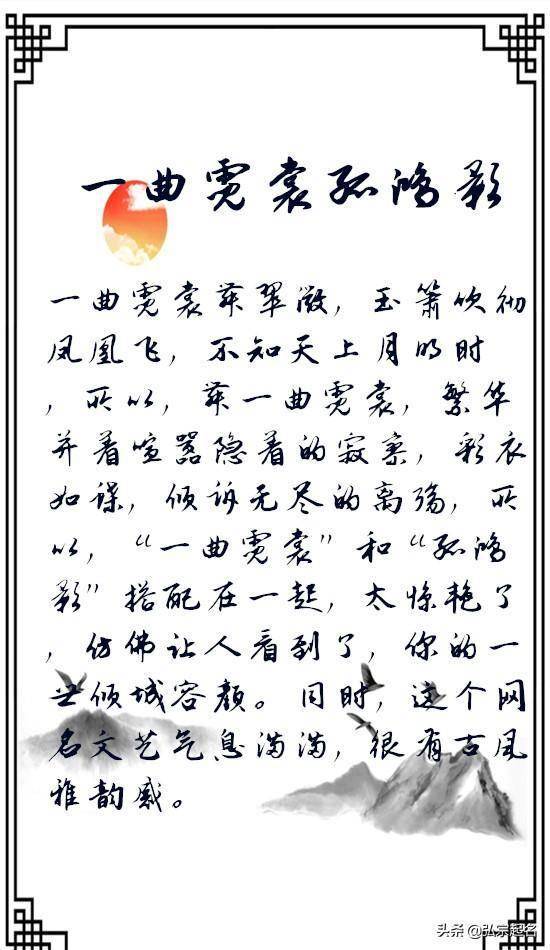 一曲霓裳孤鸿影
一曲霓裳萍翠微，玉箫吹彻
凤凰飞，不知天上月明时
，所以，萍一曲霓裳，繁华
并着喧嚣隐着的寂寥，彩衣
如蝶，倾诉无尽的离殇，所
以，“一曲霓裳”和“孤鸿
影”搭配在一起，太惊艳了
，仿佛让人看到了，你的一
世倾城容颜。同时，这个网
名文艺气息满满，很有古风
雅韵感。
头条 @弘宗起名